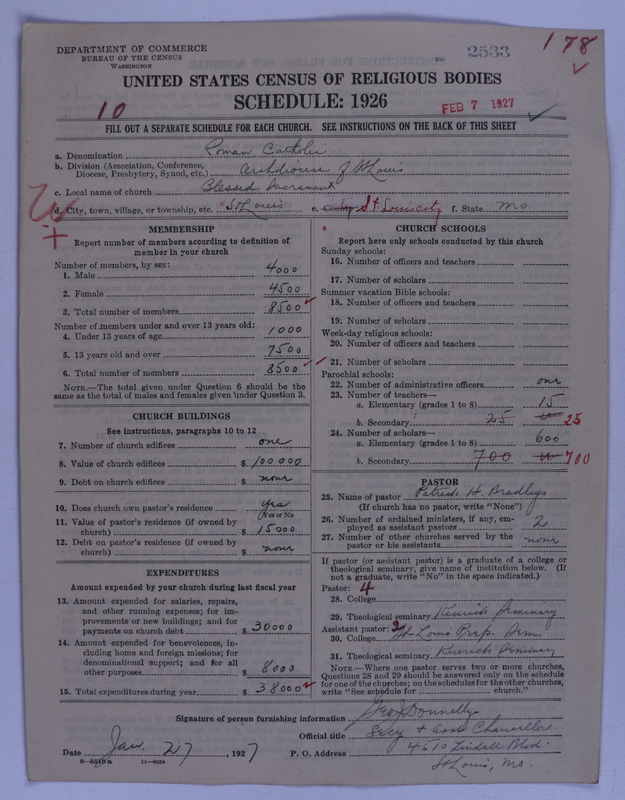 DEPARTMENT OF COMMERCE
BUREAU OF THE CENSUS
WASHINGTON
2533
178
UNITED STATES CENSUS OF RELIGIOUS BODIES
SCHEDULE: 1926
10
FEB 7 1927
FILL OUT A SEPARATE SCHEDULE FOR EACH CHURCH. SEE INSTRUCTIONS ON THE BACK OF THIS SHEET
a. Denomination Roman Catholic
b. Division (Association, Conference, Diocese, Presbytery, Synod, etc.) Archdiocese of St Louis
c. Local name of church Blessed Sacrament
d. City, town, village, or township, etc. St Louis e. County St Louis City f. State Mo
MEMBERSHIP
Report number of members according to definition of
member in your church
Number of members, by sex:
1. Male 4000
2. Female 4500
3. Total number of members 8500
Number of members under and over 13 years old:
4. Under 13 years of age 1000
5. 13 years old and over 7500
6. Total number of members 8500
NOTE.—The total given under Question 6 should be the
same as the total of males and females given under Question 3.
CHURCH BUILDINGS
See instructions, paragraphs 10 to 12
7. Number of church edifices one
8. Value of church edifices $ 100 000
9. Debt on church edifices $ none
10. Does church own pastor's residence yes
(Yes or No)
11. Value of pastor's residence (if owned by
church) $ 15000
12. Debt on pastor's residence (if owned by
church) $ none
EXPENDITURES
Amount expended by your church during last fiscal year
13. Amount expended for salaries, repairs,
and other running expenses; for im-
provements or new buildings; and for
payments on church debt $ 30000
14. Amount expended for benevolences, in-
cluding home and foreign missions; for
denominational support; and for all
other purposes $ 8000
15. Total expenditures during year $ 38000
CHURCH SCHOOLS
Report here only schools conducted by this church
Sunday schools:
16. Number of officers and teachers
17. Number of scholars
Summer vacation Bible schools:
18. Number of officers and teachers
19. Number of scholars
Week-day religious schools:
20. Number of officers and teachers
21. Number of scholars
Parochial schools:
22. Number of administrative officers one
23. Number of teachers—
a. Elementary (grades 1 to 8) 15
b. Secondary 25 25
24. Number of scholars—
a. Elementary (grades 1 to 8) 600
b. Secondary 700 700
PASTOR
25. Name of pastor Patrick H. Bradley
(If church has no pastor, write "None")
26. Number of ordained ministers, if any, em-
ployed as assistant pastors 2
27. Number of other churches served by the
pastor or his assistants none
If pastor (or assistant pastor) is a graduate of a college or
theological seminary, give name of institution below. (If
not a graduate, write "No" in the space indicated.)
Pastor: 4
28. College
29. Theological seminary Kenrick Seminary
Assistant pastor: 2
30. College St. Louis Prep. Sem.
31. Theological seminary Kenrick Seminary
NOTE.—Where one pastor serves two or more churches,
Questions 28 and 29 should be answered only on the schedule
for one of the churches; on the schedules for the other churches,
write "See schedule for church."
Signature of person furnishing information Geo J Donnelly
Official title Secy + Asst Chancellor
Date Jan. 27, 1927 P. O. Address 4610 Lindell Blvd.
St Louis, Mo.
11—9054